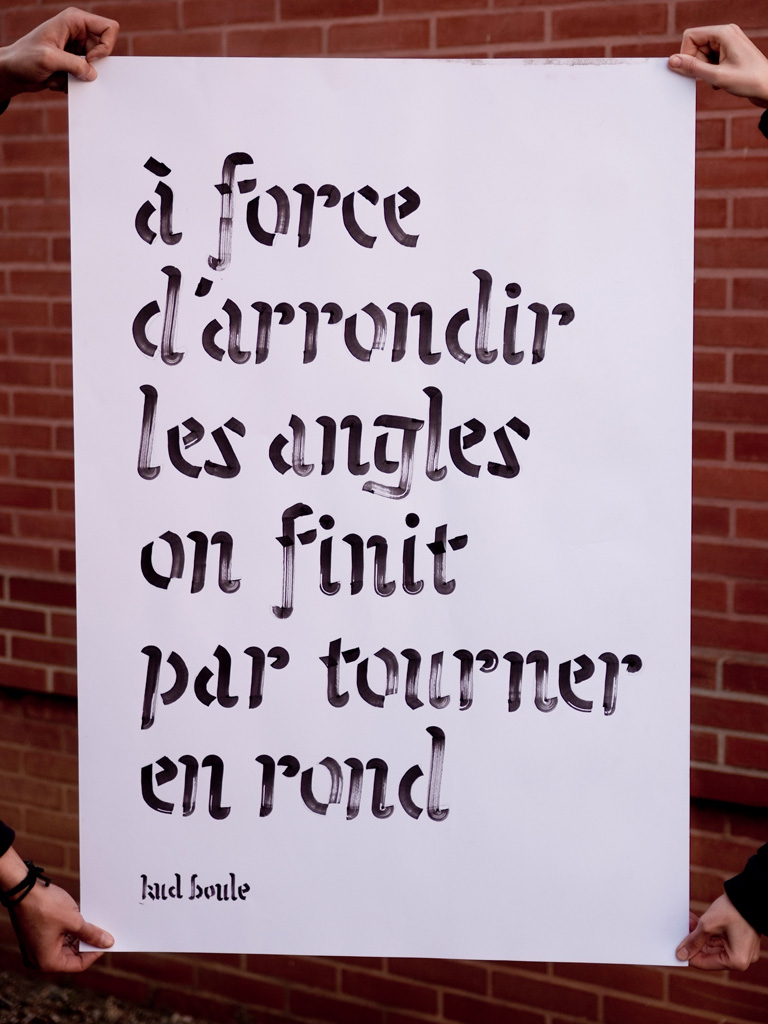 à force
d'arrondir
les angles
on finit
par tourner
en rond
kud boule